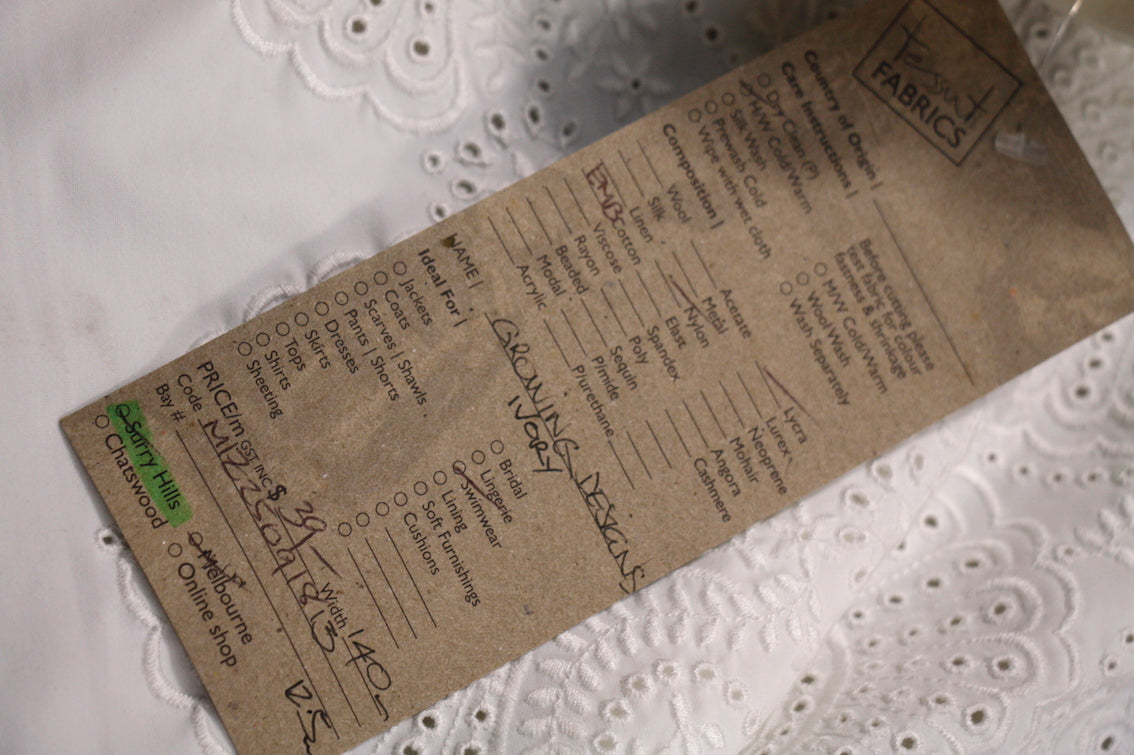 Tessuti
FABRICS
Country of Origin |
Care Instructions |
Dry Clean (P)
H/W Cold/Warm
Silk Wash
Prewash Cold
Wipe with wet cloth
Before cutting please
test fabric for colour
fastness & shrinkage
M/W Cold/Warm
Wool Wash
Wash Separately
Composition |
Wool
Silk
Linen
EMB Cotton
Viscose
Rayon
Beaded
Modal
Acrylic
Acetate
Metal
Nylon
Elast
Spandex
Poly
Sequin
P/mide
P/urethane
Lycra
Lurex
Neoprene
Mohair
Angora
Cashmere
NAME | GROWING DESIGNS
IVORY
Ideal For |
Jackets
Coats
Scarves | Shawls
Pants | Shorts
Dresses
Skirts
Tops
Shirts
Sheeting
Bridal
Lingerie
Swimwear
Lining
Soft Furnishings
Cushions
PRICE/m GST INC $ 39- Width 140-
Code
Bay #
Surry Hills
Chatswood
Melbourne
Online shop